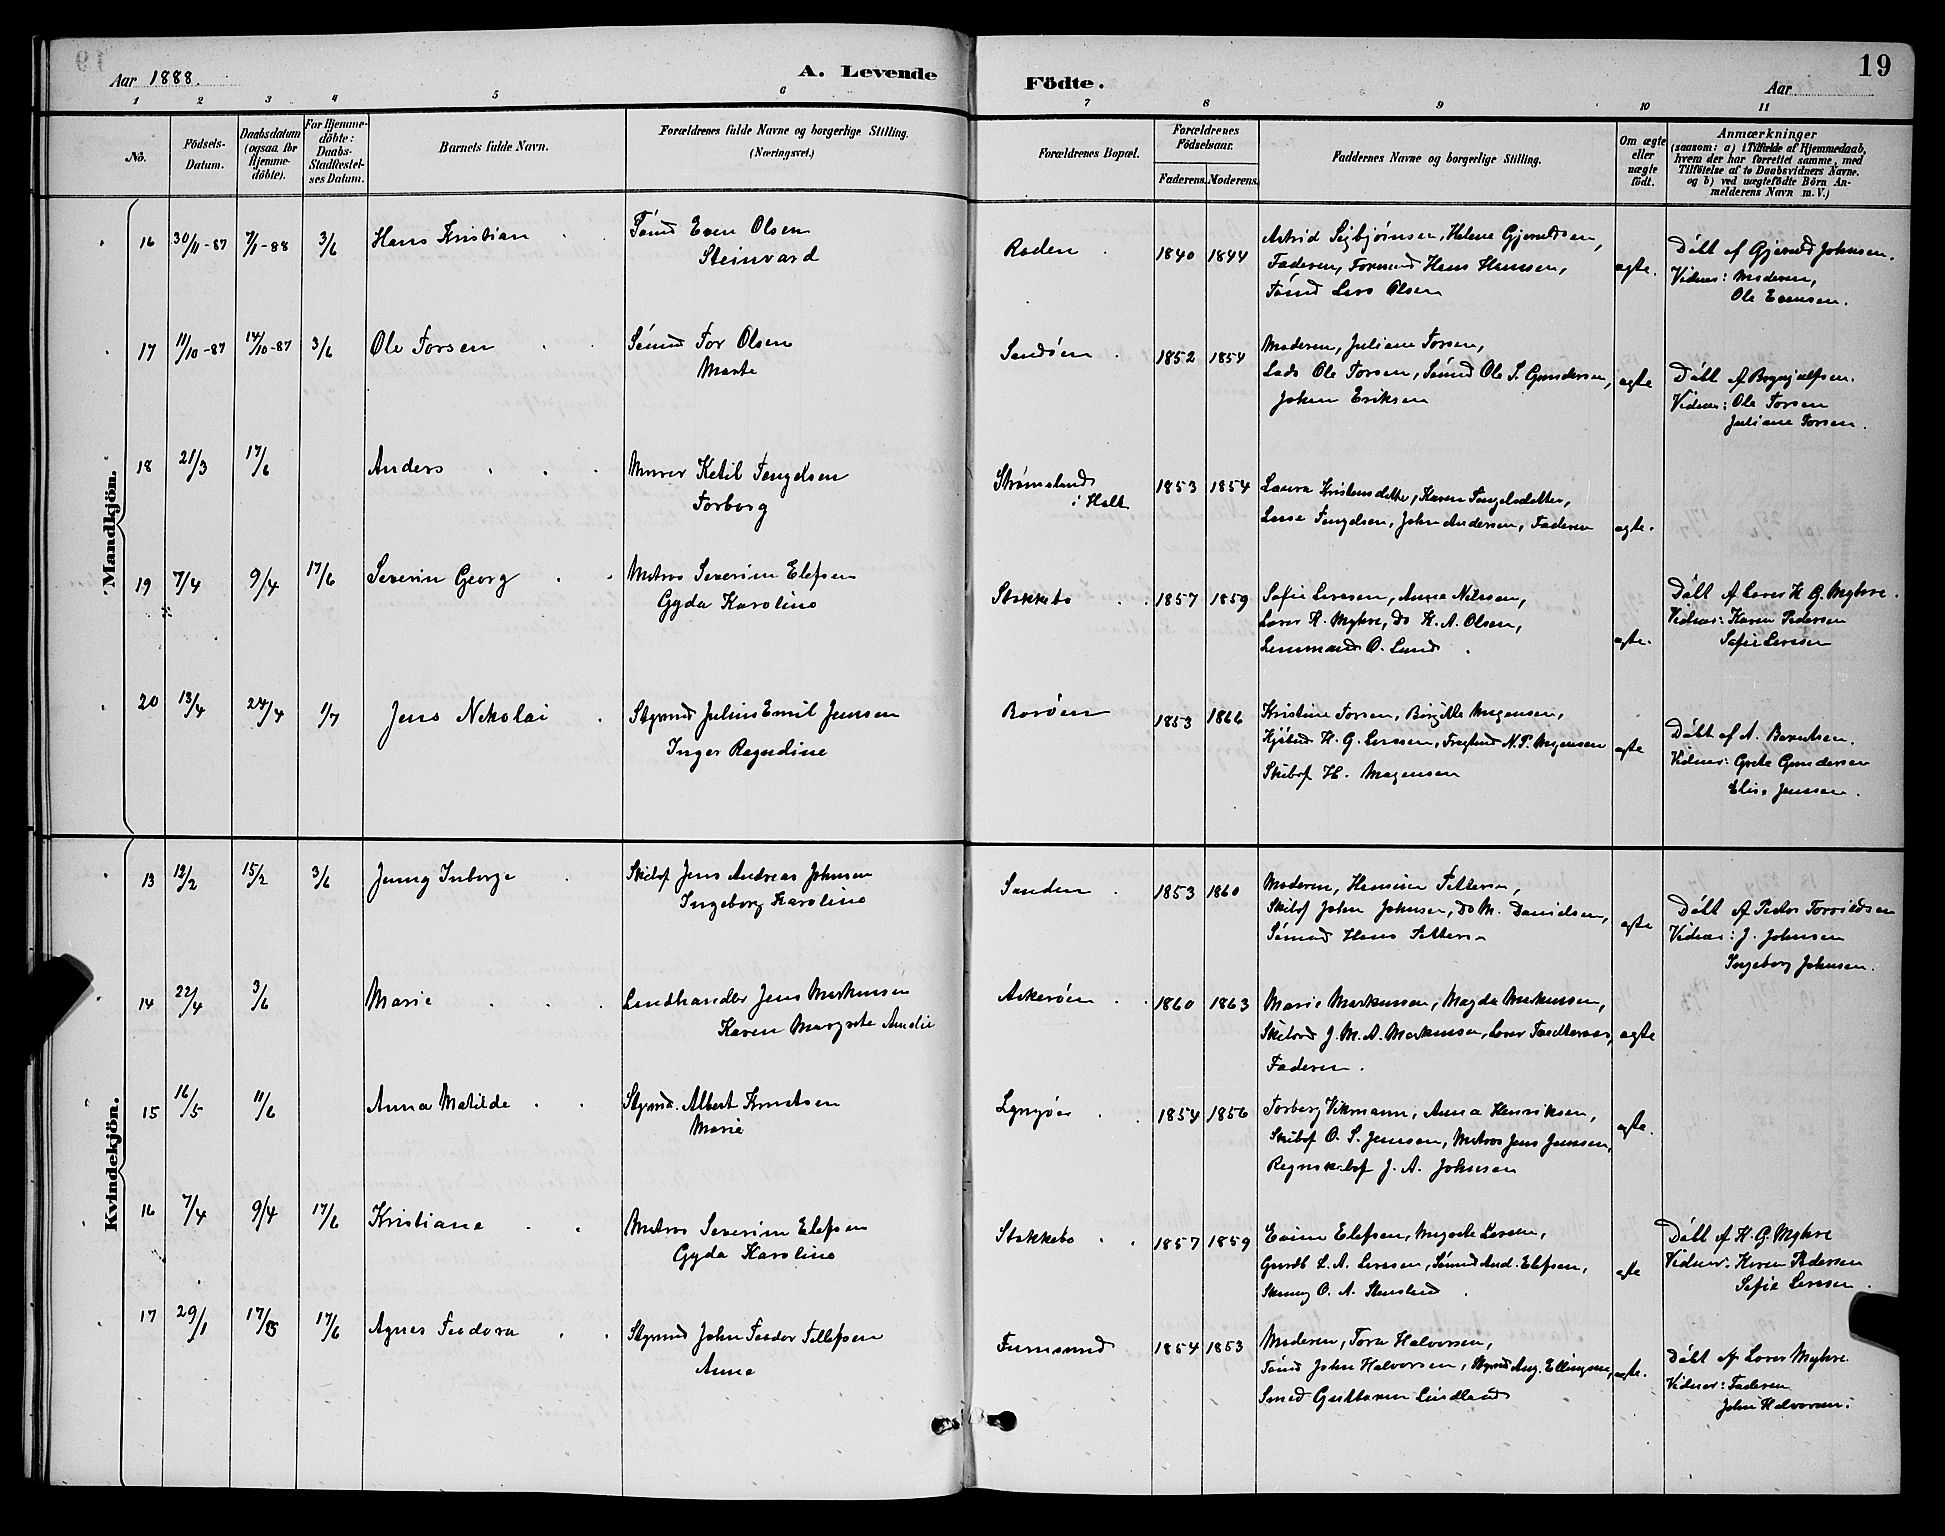 19
Aar 1888.
A. Levende Födte.
Aar
1 2 3 4 5 6 7 8 9 10 11
No.
Födsels-Datum.
Daabsdatum (ogsaa for Hjemme-döbte).
For Hjemme-döbte: Daabs-Stadfæstel-ses Datum.
Barnets fulde Navn.
Forældrenes fulde Navne og borgerlige Stilling. (Næringsvei.)
Forældrenes Bopæl.
Forældrenes Födselsaar.
Faderens. Moderens.
Faddernes Navne og borgerlige Stilling.
Om ægte eller uægte födt.
Anmærkninger
(saasom: a) i Tilfælde af Hjemmedaab, hvem der har forrettet samme, med Tilföielse af to Daabsvidners Navne. og b) ved uægtefödte Börn An-melderens Navn m. V.)
Mandkjön.
16 30/11-87 7/1-88 3/6 Hans Kristian
Tømd Even Olsen
Steinvard
Roden 1840 1844
Astrid Sigbjørnsen, Helene Gjeruldsen,
Faderen, Formand Hans Hansen,
Tømd Lars Olsen
ægte.
Døbt af Gjeruld Johnsen.
Vidner: Moderen,
Ole Evensen.
17 11/10-87 14/10-87 3/6 Ole Torsen
Sømd Tor Olsen
Marte
Sandøen 1852 1854
Moderen, Juliane Torsen,
Lods Ole Torsen, Sømd Ole S. Gundersen,
Johan Eriksen
ægte
Døbt af
Vidner: Ole Torsen
Juliane Torsen.
18 21/3 17/6 Anders
Murer Ketil Tengelsen
Torborg
Strømsland
i Holt
1853 1854
Laura Kristensdatter, Karen Tengelsdatter,
Lasse Tengelsen, John Andersen, Faderen
ægte.
19 7/4 9/4 17/6 Severin Georg
Matros Severin Elefsen
Gyda Karoline
Stokkebo 1857 1859
Sofie Larssen, Anna Nilssen,
Lærer H. Myhre, do K. A. Olsen,
O. Lund
ægte.
Døbt af Lærer H. G. Myhre.
Vidner: Karen Pedersen
Sofie Larssen
20 13/4 24/4 1/7 Jens Nikolai
Styrmd Julius Emil Jenssen
Inger Regndine
Borøen 1853 1866
Kristine Torsen, Birgitte Mogensen,
H. G. Larssen, N. P. Mogensen
Skibsf H. Mogensen
ægte
Døbt af A. Berntsen.
Vidner: Grete Gundersen
Elise Jenssen.
Kvindekjön.
13 12/2 15/2 3/6 Jenny Inborge
Skibsf Jens Andreas Johnsen
Ingeborg Karoline
Sanden 1853 1860
Moderen, Hansine Pettersen,
Skibsf John Johnsen, do M. Danielsen,
Sømd Hans Pettersen
ægte
Døbt af Peder Torvildsen
Vidner: J. Johnsen
Ingeborg Johnsen.
14 22/4 3/6 Marie
Landhandler Jens Markussen
Karen Margrete Amalie
Askerøen 1860 1863
Marie Markussen, Magda Markussen,
J. M. A. Markussen, Lærer
Faderen.
ægte
15 16/5 11/6 Anna Matilde
Styrmd. Albert Knutsen
Marie
Lyngøer 1854 1856
Torborg Vikmann, Anna Henriksen,
Skibsf O. S. Jenssen, Matros Jens Jenssen,
J. A. Johnsen
ægte.
16 7/4 9/4 17/6 Kristiane
Matros Severin Elefsen
Gyda Karoline
Stokkebo 1857 1859
Evine Elefsen, Margrete Larssen,
Gaardb L. A. Larssen, Sømd And. Elefsen,
O. A. Stensland
ægte
Døbt af H. G. Myhre
Vidner: Karen Pedersen
Sofie Larssen.
17 29/1 17/5 17/6 Agnes Teodora
Styrmd John Teodor Tellefsen
Anna
1854 1853
Moderen, Tora Halvorsen,
Tømd John Halvorsen, Styrmd Aug. Ellingsen,
Smed Guttorm Lindland
ægte.
Døbt af Lærer Myhre.
Vidner: Faderen
John Halvorsen.